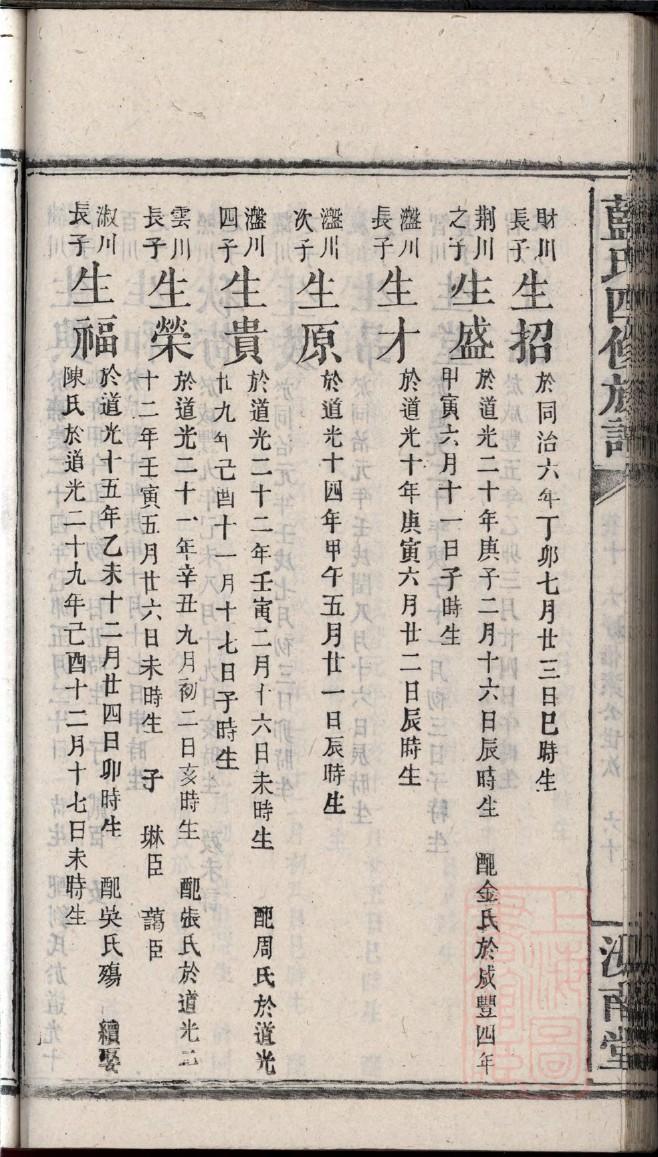 藍氏四修族譜
汝南堂
財川長子 生招 於同治六年丁卯七月廿三日巳時生
荆川之子 生盛 於道光二十年庚子二月十六日辰時生 配金氏於咸豐四年
甲寅六月十一日子時生
瀊川長子 生才 於道光十年庚寅六月廿二日辰時生
瀊川次子 生原 於道光十四年甲午五月廿一日辰時生
瀊川四子 生貴 於道光二十二年壬寅二月十六日未時生 配周氏於道光
廿九年己酉十一月十七日子時生
雲川長子 生榮 於道光二十一年辛丑九月初二日亥時生 配張氏於道光二
十二年壬寅五月廿六日未時生 子 琳臣 藹臣
淑川長子 生福 於道光十五年乙未十二月廿四日卯時生 配吳氏殤 續娶
陳氏於道光二十九年己酉十二月十七日未時生